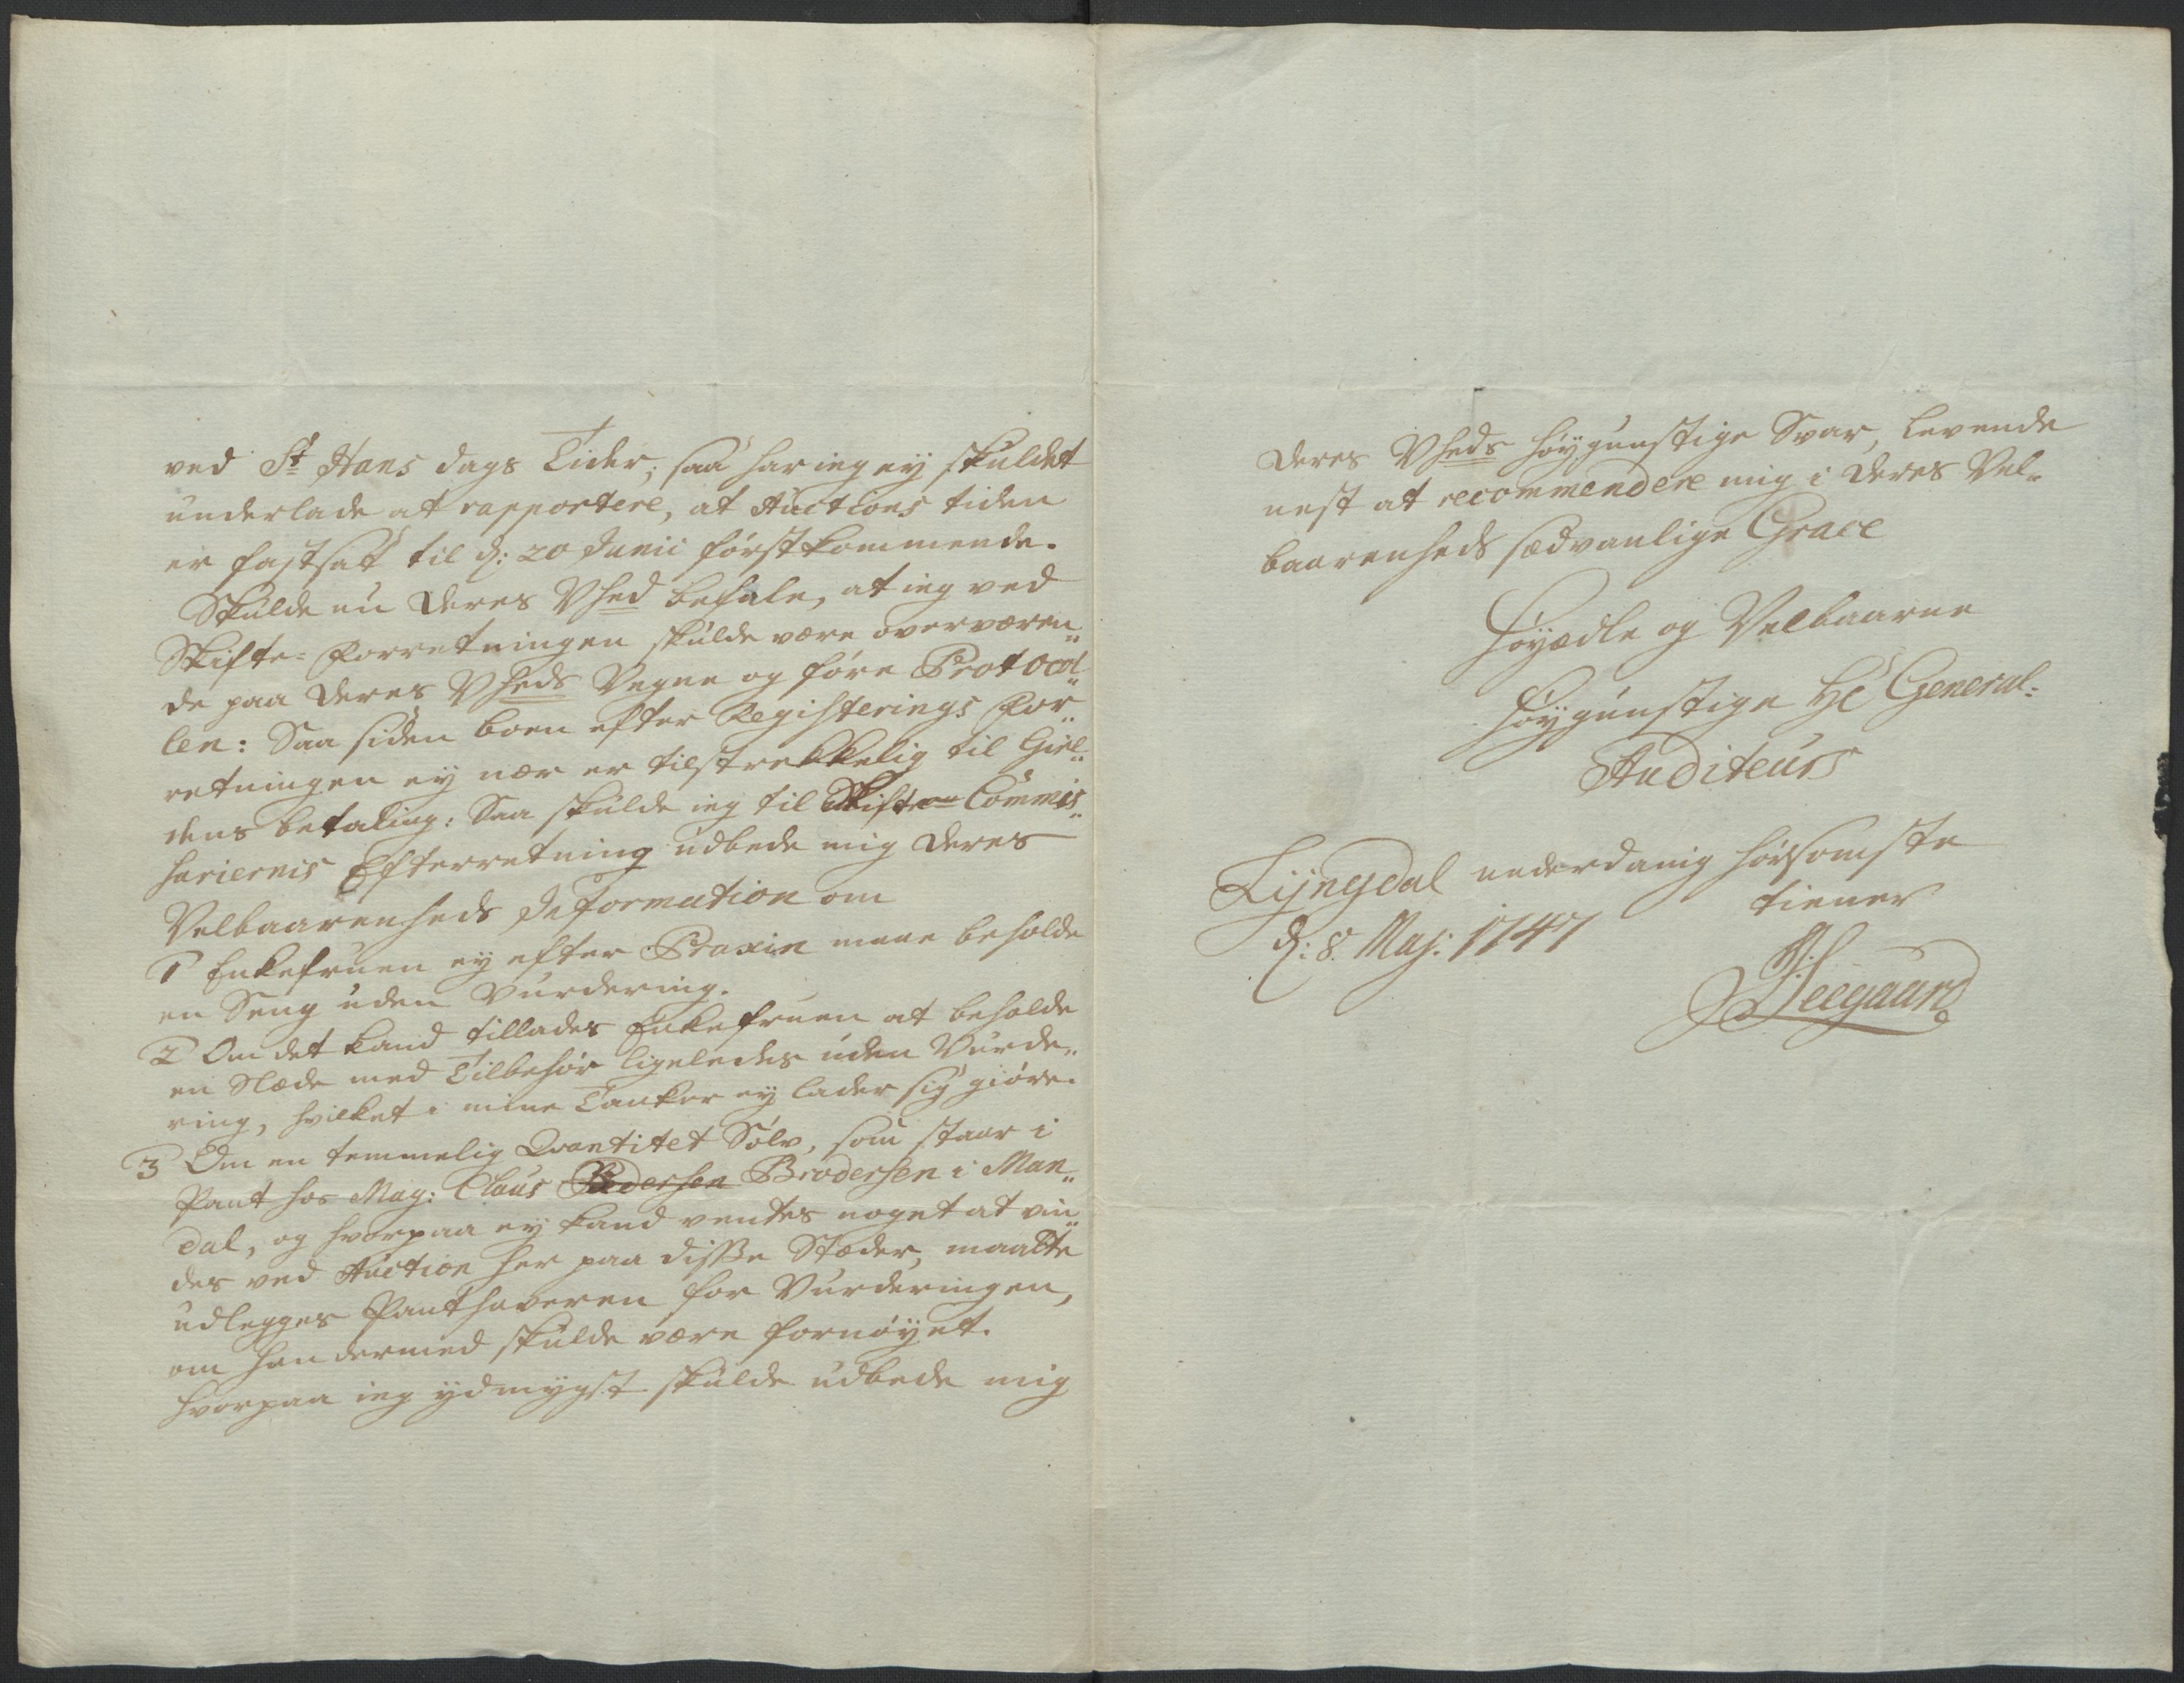 ved St Hans dags Tider, saa har ieg ey skuldet
underlade at rapportere, at Auctions tiden
er fastsat til d: 20 Junii førstkommende.
Skulde nu Deres Vhed befale, at ieg ved
Skifte-Forretningen skulde være overværen„
de paa Deres Vheds Vegne og føre Protocol„
len: Saa siden boen efter Registerings For„
retningen ey nær er tilstrekkelig til Giel„
dens betaling: Saa skulde ieg til Skifte Commis„
sariernis Efterretning udbede mig Deres
Velbaarenheds Information om
1 Enkefruen ey efter Praxin maae beholde
en Seng uden Vurdering.
2 Om det kand tillades Enkefruen at beholde
en Slæde med Tilbehør ligeledes uden Vurde„
ring, hvilket i mine Tanker ey lader sig giøre.
3 Om en temmelig Qvantitet Sølv, som staar i
Pant hos Mag: Claus Pedersen Brodersen i Man„
dal, og hvorpaa ey kand ventes noget at vin„
des ved Auction her paa disse Stæder, maatte
udlegges Panthaveren for Vurderingen,
om han dermed skulde være fornøyet.
hvorpaa ieg ydmygst skulde udbede mig
Deres Vheds høygunstige Svar, levende
nest at recommendere mig i Deres Vel„
baarenheds sædvanlige Grace
Høyædle og Velbaarne
Høygunstige Hr General-
Auditeurs
Lyngdal underdanig hørsomste
tiener
d: 8. Maj: 1747
Seegaard